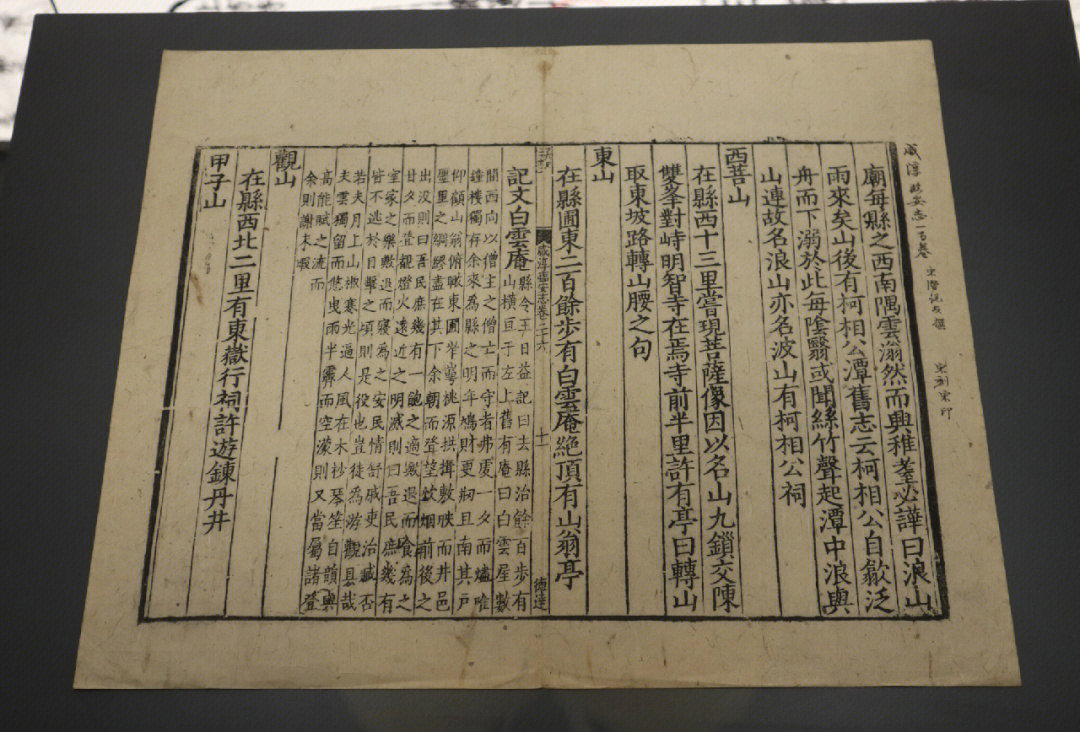 咸淳臨安志一百卷
宋潛說友撰
宋刻宋印
廟每縣之西南隅雲滃然而興稚耋必譁曰浪山
雨來矣山後有柯相公潭舊志云柯相公自歙泛
舟而下溺於此每陰翳或聞絲竹聲起潭中浪與
山連故名浪山亦名波山有柯相公祠
西菩山
在縣西十三里嘗現菩薩像因以名山九鎖交陳
雙峯對峙明智寺在焉寺前半里許有亭曰轉山
取東坡路轉山腰之句
東山
在縣圃東二百餘步有白雲庵絶頂有山翁亭
咸淳臨安志卷二十六
十一
德逹
記文白雲庵
縣令王日益記曰去縣治餘百步有
山橫亘于左上舊有庵曰白雲屋數
間西向以僧主之僧亡而守者弗虔一夕而燼唯
鐘樓獨存余來為縣之明年鳩財更刱且南其戶
仰顧山翁俯瞰東圃
桃源拱揖數
而井邑
壥里之
綢繆盡在其下余朝而登望欽烟前後之
出沒則曰吾民庶幾有一飽之適歟退而食為之
甘夕而登觀燈火遠近之明滅則曰吾民庶幾有
室家之樂歟退而寢為之安民情舒戚吏治臧否
皆不逃於目擊之頃則是役也豈徒為游觀县哉
若夫月上山
寒光逼人風在木杪琴笙自韻與
夫雲獨留而
曳雨半霽而空濛則又當屬諸登
高能賦之流而
余則謝未暇
觀山
在縣西北二里有東嶽行祠許遊鍊丹井
甲子山